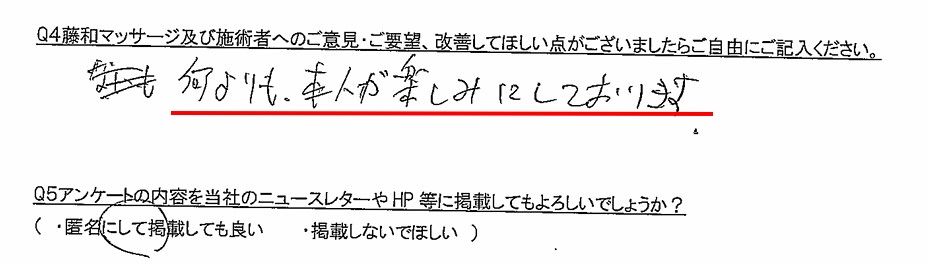 Q4藤和マッサージ及び施術者へのご意見・ご要望、改善してほしい点がございましたらご自由にご記入ください。
何よりも、本人が楽しみにしております
Q5アンケートの内容を当社のニュースレターやHP等に掲載してもよろしいでしょうか？
（ ・匿名にして掲載しても良い ・掲載しないでほしい ）